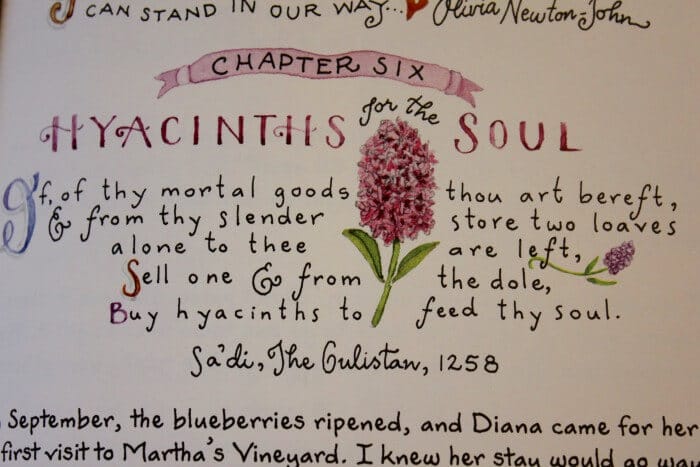 CAN STAND IN OUR WAY... Olivia Newton-John
CHAPTER SIX
HYACINTHS for the SOUL
If, of thy mortal goods thou art bereft,
& from thy slender store two loaves
alone to thee are left,
Sell one & from the dole,
Buy hyacinths to feed thy soul.
Sa'di, The Gulistan, 1258
September, the blueberries ripened, and Diana came for her
first visit to Martha's Vineyard. I knew her stay would go way